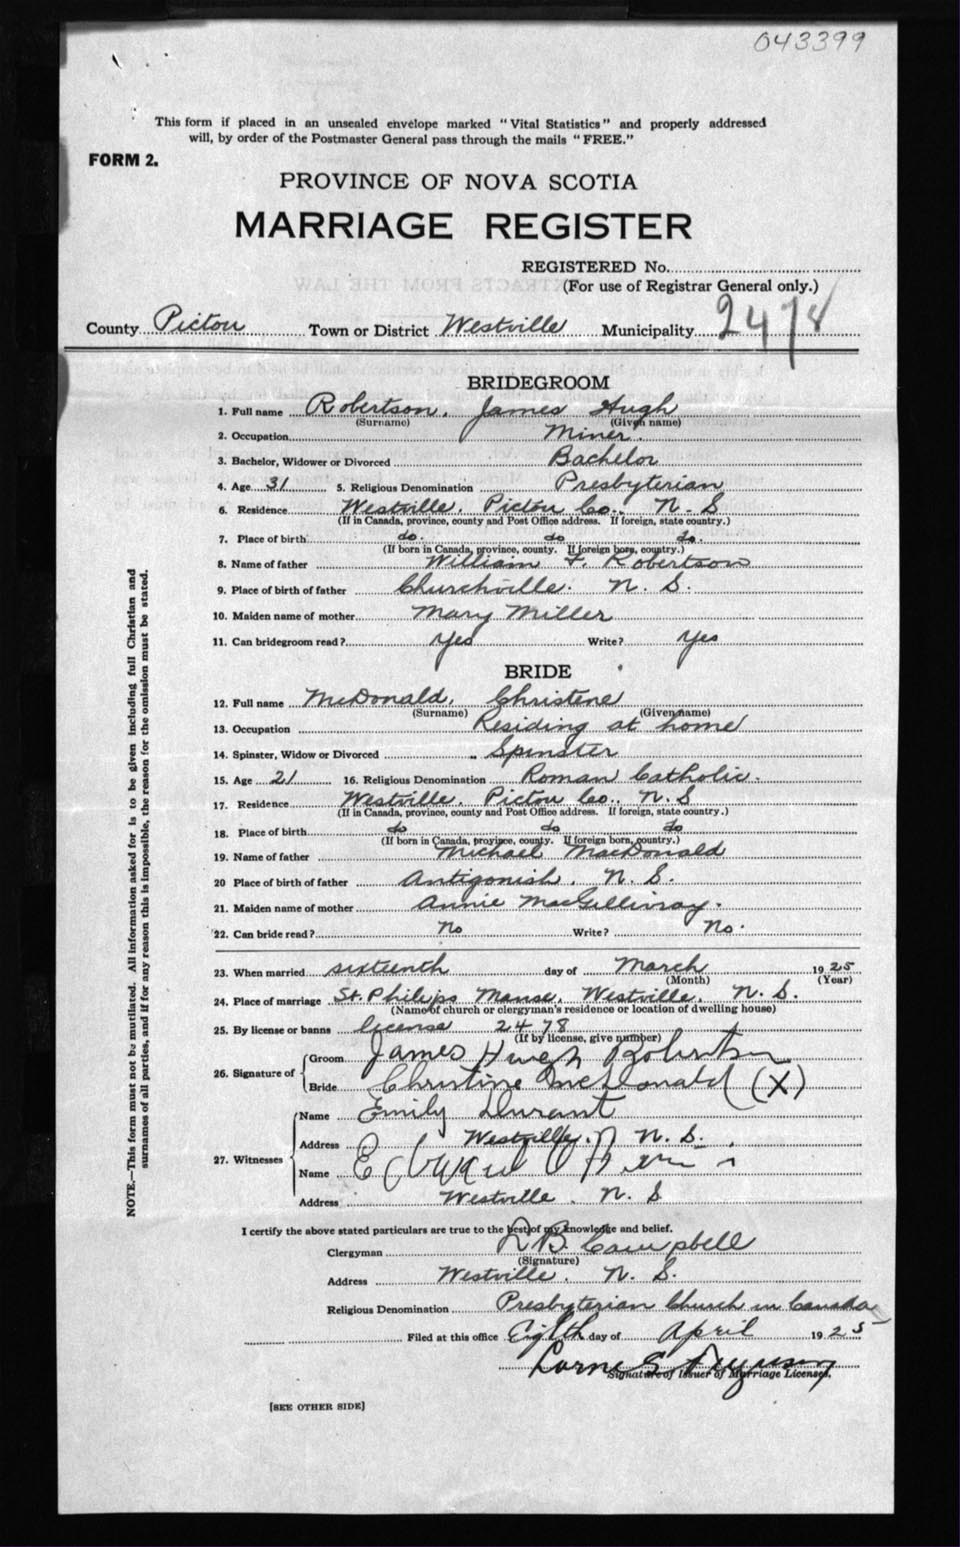 043399
This form if placed in an unsealed envelope marked "Vital Statistics" and properly addressed
will, by order of the Postmaster General pass through the mails "FREE."
FORM 2.
PROVINCE OF NOVA SCOTIA
MARRIAGE REGISTER
REGISTERED No.
(For use of Registrar General only.)
County Pictou Town or District Westville Municipality 2478
BRIDEGROOM
1. Full name Robertson, James Hugh
(Surname) (Given name)
2. Occupation Miner.
3. Bachelor, Widower or Divorced Bachelor
4. Age 31 5. Religious Denomination Presbyterian
6. Residence Westville, Pictou Co., N. S
(If in Canada, province, county and Post Office address. If foreign, state country.)
7. Place of birth do. do do.
(If born in Canada, province, county. If foreign born, country.)
8. Name of father William F. Robertson
9. Place of birth of father Churchville. N. S.
10. Maiden name of mother Mary Miller
11. Can bridegroom read? Yes Write? Yes
BRIDE
12. Full name McDonald, Christene
(Surname) (Given name)
13. Occupation Residing at home
14. Spinster, Widow or Divorced Spinster
15. Age 21 16. Religious Denomination Roman Catholic.
17. Residence Westville, Pictou Co., N. S
(If in Canada, province, county and Post Office address. If foreign, state country.)
18. Place of birth do do do
(If born in Canada, province, county. If foreign born, country.)
19. Name of father Michael MacDonald
20 Place of birth of father Antigonish, N. S.
21. Maiden name of mother Annie MacGillivray.
22. Can bride read? No Write? No.
23. When married sixteenth day of March 1925
(Month) (Year)
24. Place of marriage St. Philips Manse, Westville, N. S.
(Name of church or clergyman's residence or location of dwelling house)
25. By license or banns license 2478
(If by license, give number)
26. Signature of Groom James Hugh Robertson
Bride Christine McDonald (X)
27. Witnesses
Name Emily Durant
Address Westville, N. S.
Name
Address Westville, N. S
I certify the above stated particulars are true to the best of my knowledge and belief.
Clergyman B. Campbell
(Signature)
Address Westville, N. S.
Religious Denomination Presbyterian Church in Canada
Filed at this office Eighth day of April 1925
Lorne S Ferguson
Signature of Issuer of Marriage Licenses.
[SEE OTHER SIDE]
NOTE.—This form must not be mutilated. All information asked for is to be given including full Christian and
surnames of all parties, and if for any reason this is impossible, the reason for the omission must be stated.